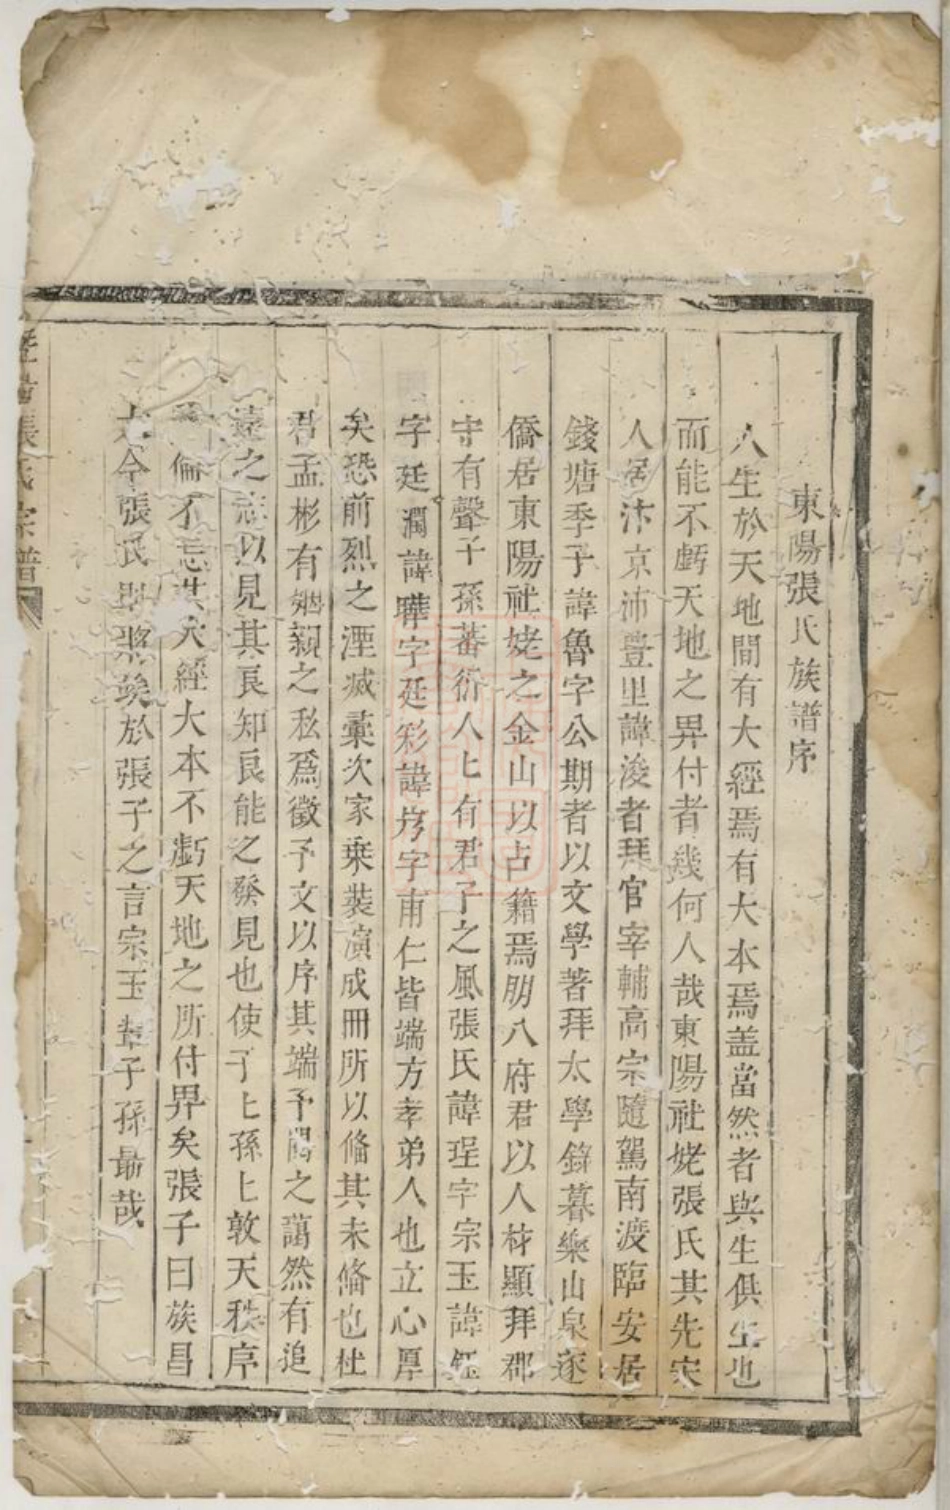 東陽張氏族譜序
人生於天地間有大經焉有大本焉盖當然者與生俱生也
而能不虧天地之畀付者幾何人哉東陽社姥張氏其先宋
人居汴京沛豊里諱浚者拜官宰輔高宗隨駕南渡臨安居
錢塘季子諱魯字公期者以文學著拜太學錄暮樂山泉逐
僑居東陽社姥之金山以占籍焉朋八府君以人材顯拜郡
守有聲子孫蕃衍人匕有君子之風張氏諱珵字宗玉諱鈺
字廷潤諱曄字廷彩諱字甫仁皆端方孝弟人也立心厚
矣恐前烈之湮滅彙次家乗装演成冊所以俻其未俻也杜
君孟彬有姻親之私爲徵予文以序其端予閱之藹然有追
遠之志以見其良知良能之發見也使子匕孫匕敦天秩序
倫不忘其大經大本不虧天地之所付畀矣張子曰族昌
大今張氏於張子之言宗玉輩子孫最哉
張氏宗譜